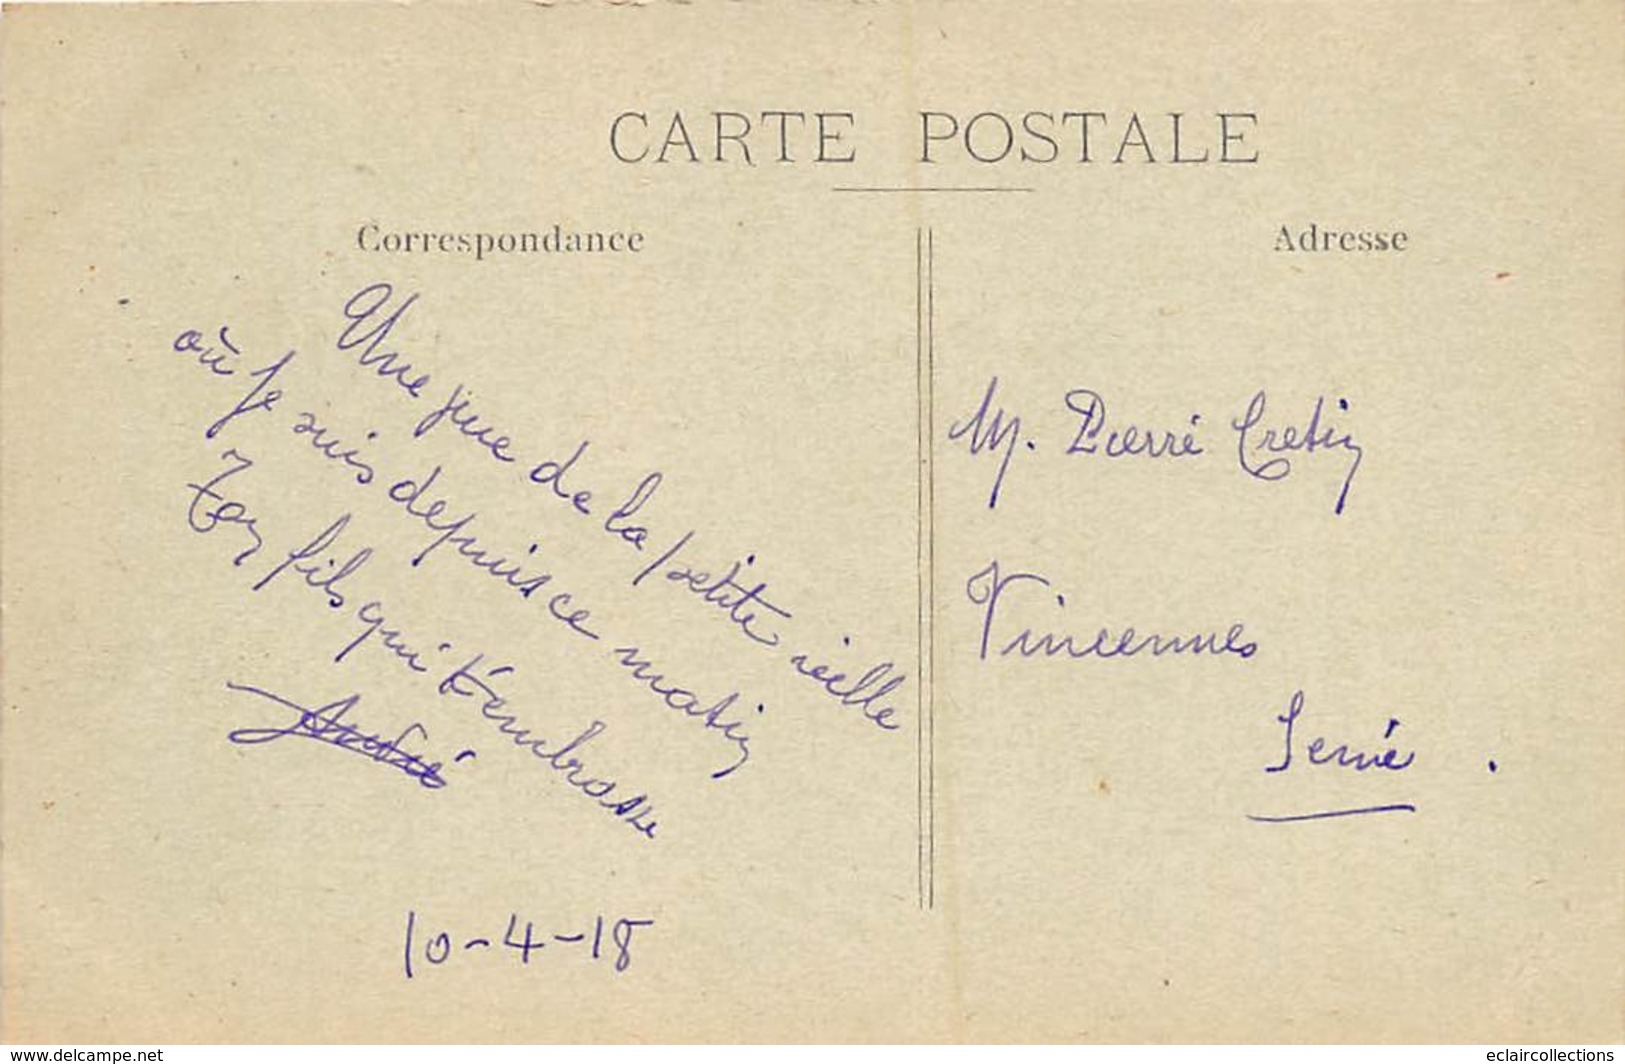 CARTE POSTALE
Correspondance
Une vue de la petite ville
où je suis depuis ce matin
Ton fils qui t'embrasse
André
10-4-18
Adresse
M. Pierre Cretin
Vincennes
Seine.
www.delcampe.net
eclaircollections